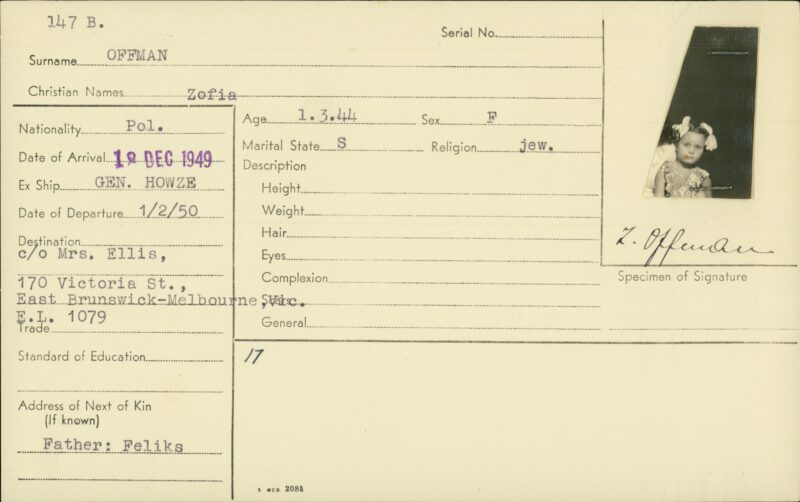 147 B.
Serial No.
Surname OFFMAN
Christian Names Zofia
Nationality Pol.
Date of Arrival DEC 1949
Ex Ship GEN. HOWZE
Date of Departure 1/2/50
Destination
c/o Mrs. Ellis,
170 Victoria St.,
East Brunswick-Melbourne, Vic.
E.L. 1079
Trade
Standard of Education
Address of Next of Kin
(If known)
Father: Feliks
Age 1.3.44 Sex F
Marital State S Religion jew.
Description
Height
Weight
Hair
Eyes
Complexion
General
17
Z. Offman
Specimen of Signature